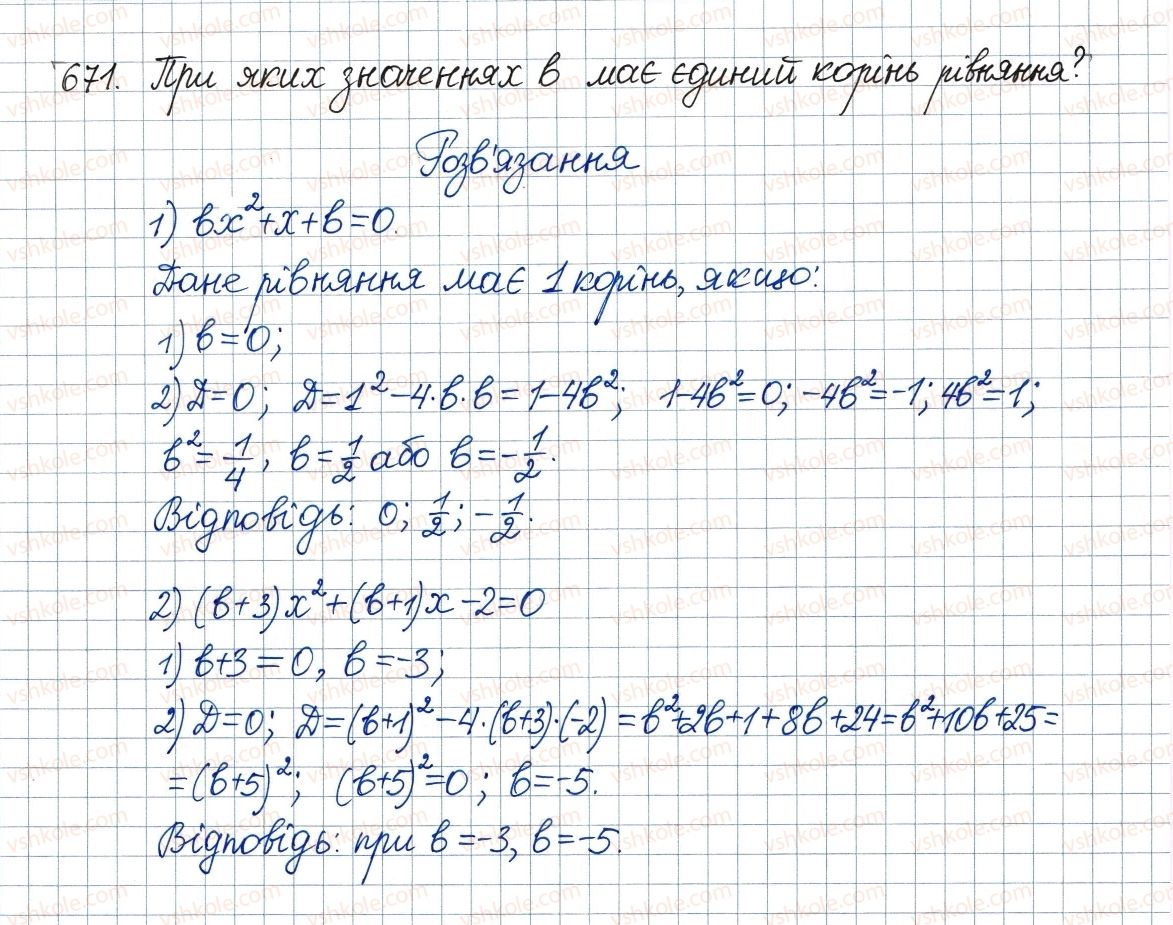 671. При яких значеннях в має єдиний корінь рівняння?
Розв'язання
1) вx²+x+в=0.
Дане рівняння має 1 корінь, якщо:
1) в=0;
2) Д=0; Д=1²-4·в·в=1-4в²; 1-4в²=0; -4в²=-1; 4в²=1;
в²=1/4, в=1/2 або в=-1/2.
Відповідь: 0; 1/2; -1/2.
2) (в+3)x²+(в+1)x-2=0
1) в+3=0, в=-3;
2) Д=0; Д=(в+1)²-4·(в+3)·(-2)=в²+2в+1+8в+24=в²+10в+25=
=(в+5)²; (в+5)²=0; в=-5.
Відповідь: при в=-3, в=-5.